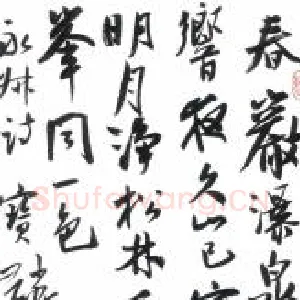 春巖瀑泉
響夜久山已
明月淨松林
峯同一色
永州诗寶
Shufawang.CN